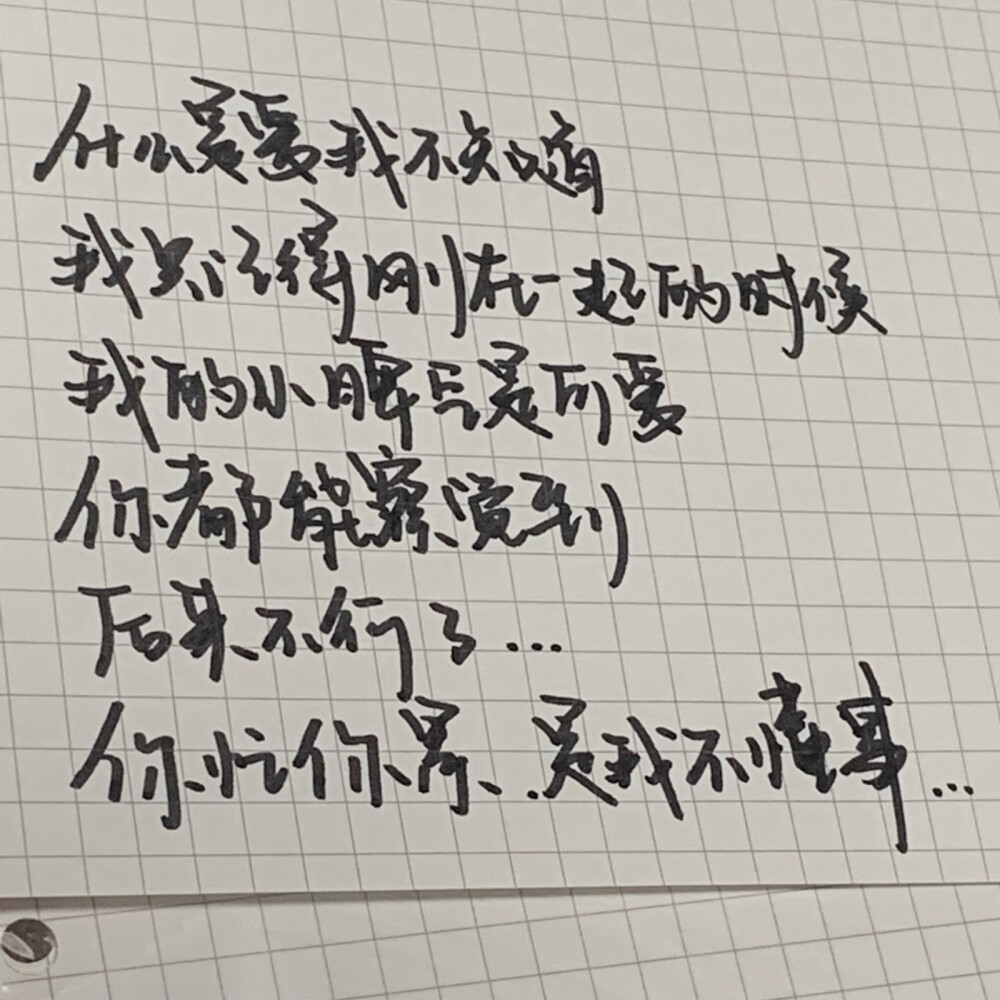 什么是爱我不知道
我只记得刚在一起的时候
我的小脾气是可爱
你都能察觉到
后来不行了...
你忙你累..是我不懂事...